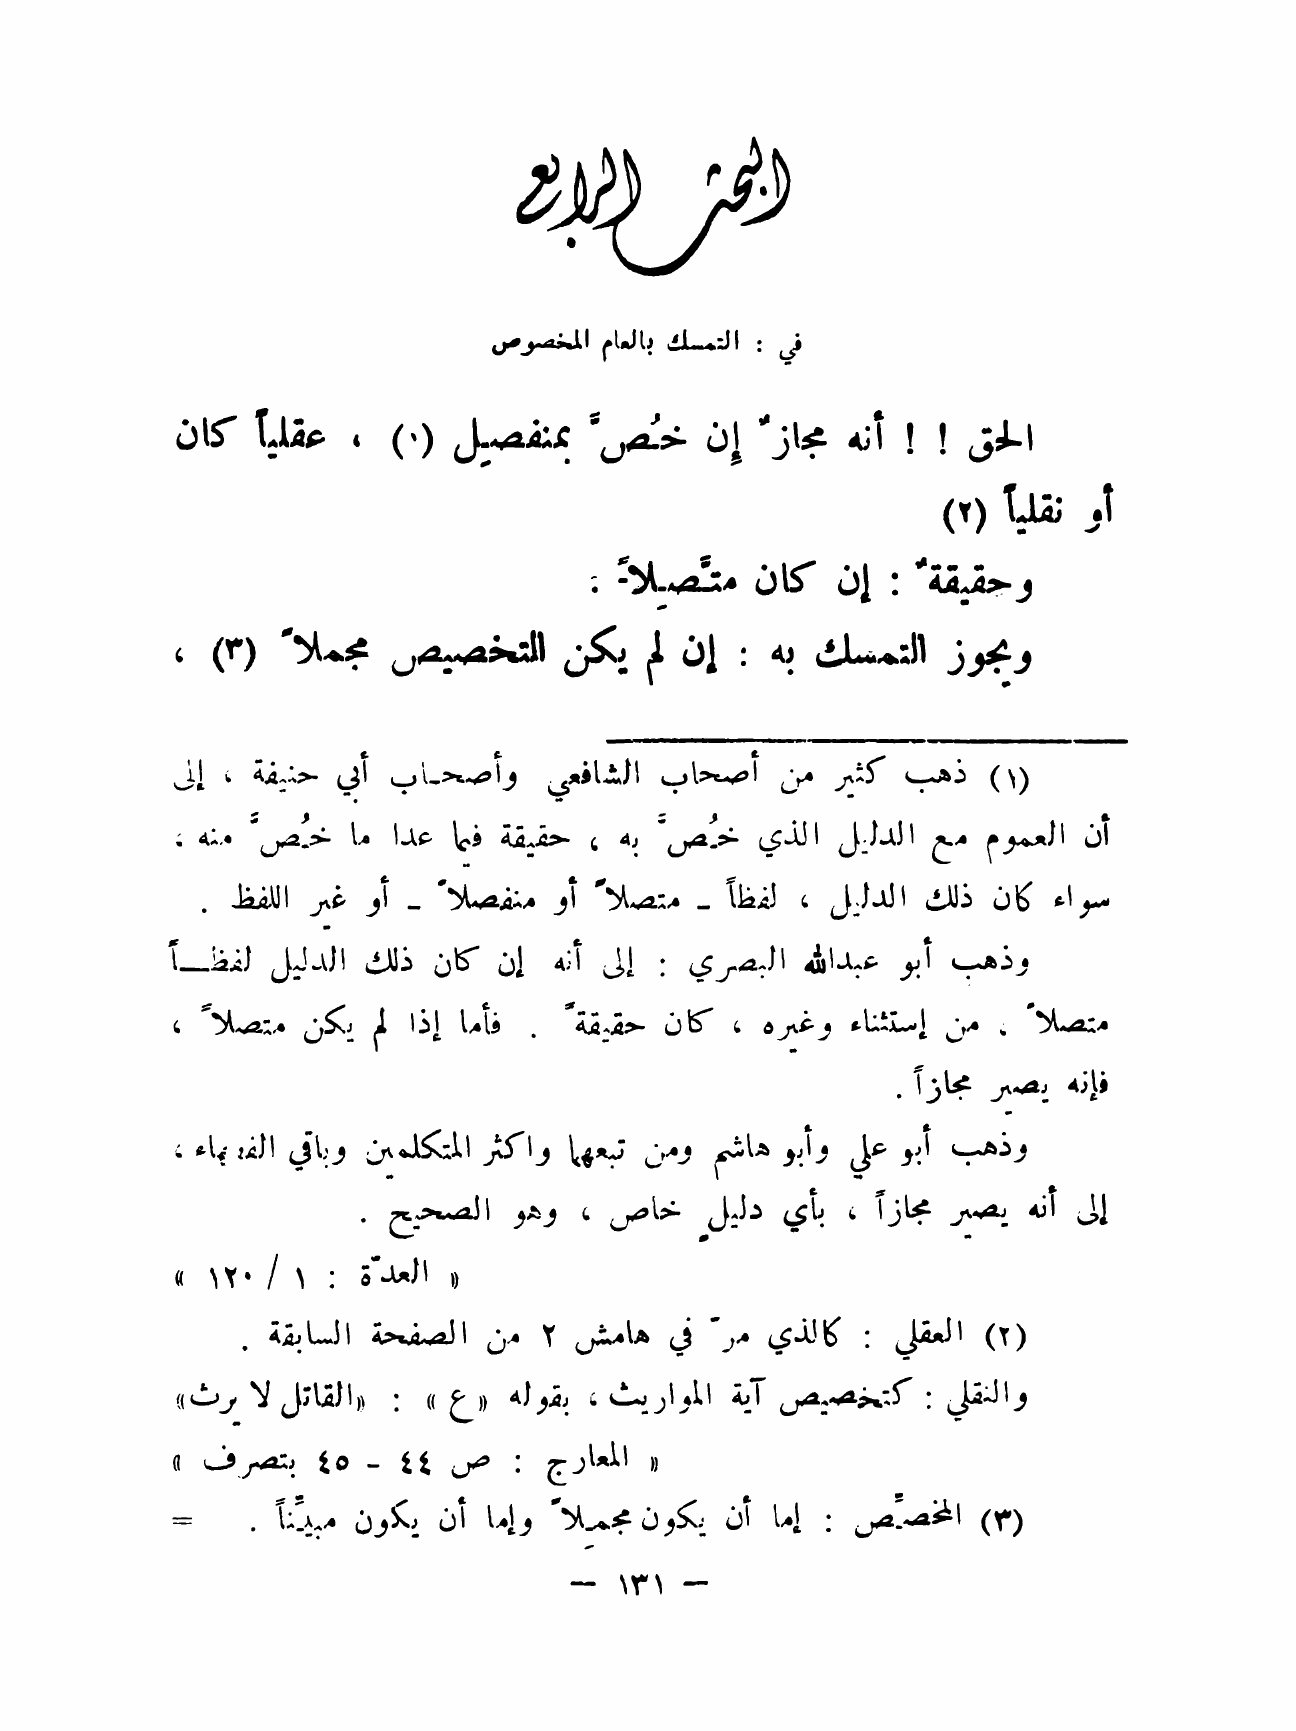 البحث الرابع
في : التمسك بالعام المخصوص
الحق ! ! أنه مجازٌ إِن خُصَّ بمنفصِل (١) ، عقلياً كان
أو نقلياً (٢)
وحقيقةٌ : إن كان متَّصِلاً .
ويجوز التمسك به : إن لم يكن التخصيص مجملاً (٣) ،
(١) ذهب كثير من أصحاب الشافعي وأصحاب أبي حنيفة ، إلى
أن العموم مع الدليل الذي خُصَّ به ، حقيقة فيما عدا ما خُصَّ منه ،
سواء كان ذلك الدليل ، لفظاً ـ متصلاً أو منفصلاً ـ أو غير اللفظ .
وذهب أبو عبدالله البصري : إلى أنه إن كان ذلك الدليل لفظاً
متصلاً ، من إستثناء وغيره ، كان حقيقةً . فأما إذا لم يكن متصلاً ،
فإنه يصير مجازاً .
وذهب أبو علي وأبو هاشم ومن تبعهما واكثر المتكلمين وباقي الفقهاء ،
إلى أنه يصير مجازاً ، بأي دليلٍ خاص ، وهو الصحيح .
« العدّة : ١ / ١٢٠ »
(٢) العقلي : كالذي مرّ في هامش ٢ من الصفحة السابقة .
والنقلي : كتخصيص آية المواريث ، بقوله «ع» : «القاتل لا يرث»
« المعارج : ص ٤٤ - ٤٥ بتصرف »
(٣) المخصِّص : إما أن يكون مجمِلاً وإما أن يكون مبيِّناً . =
— ١٣١ —